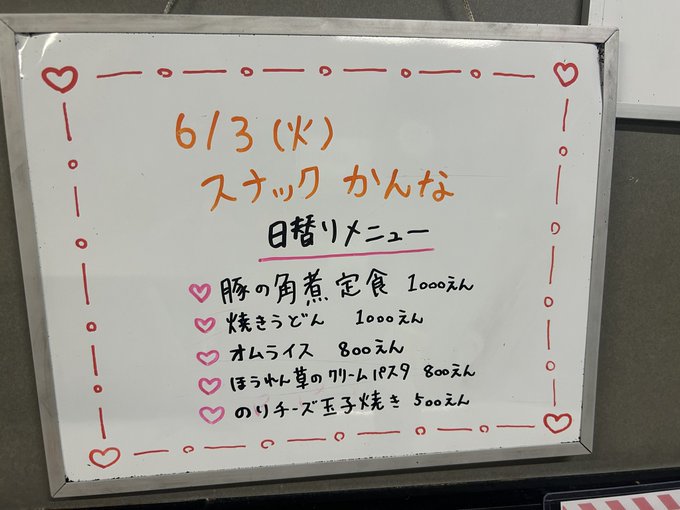 6/3(火)
スナック かんな
日替りメニュー
豚の角煮定食 1000えん
焼きうどん 1000えん
オムライス 800えん
ほうれん草のクリームパスタ 800えん
のりチーズ玉子焼き 500えん